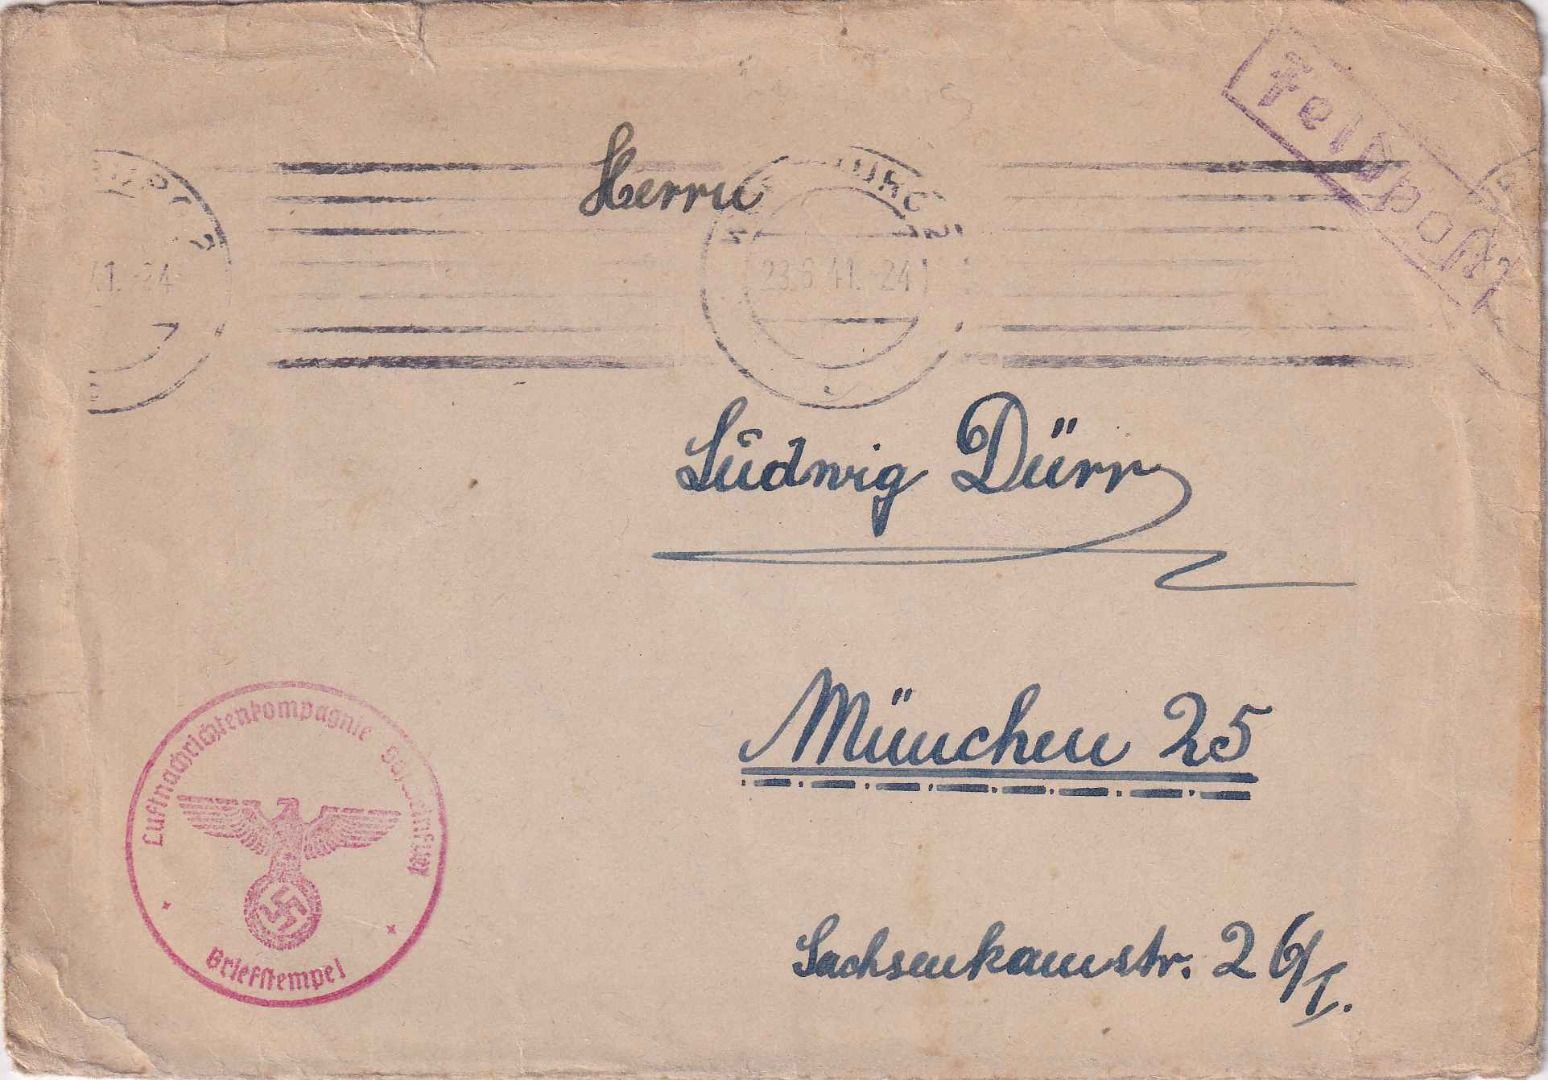 Feldpost
Herrn
41.-24
23.6.41.-24
Ludwig Dürr
München 25
Sachsenkamstr. 26/I.
Luftnachrichtenkompagnie
Briefstempel